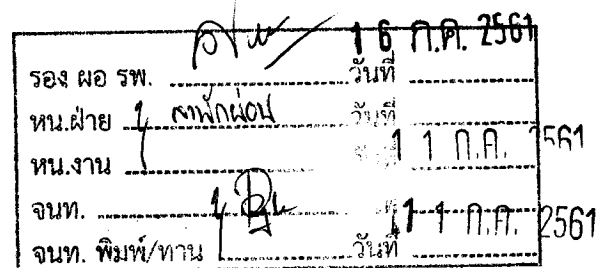 16 ก.ค. 2561
รอง ผอ รพ. วันที่
หน.ฝ่าย ลาพักผ่อน วันที่
หน.งาน 11 ก.ค. 2561
จนท. 11 ก.ค. 2561
จนท. พิมพ์/ทาน วันที่